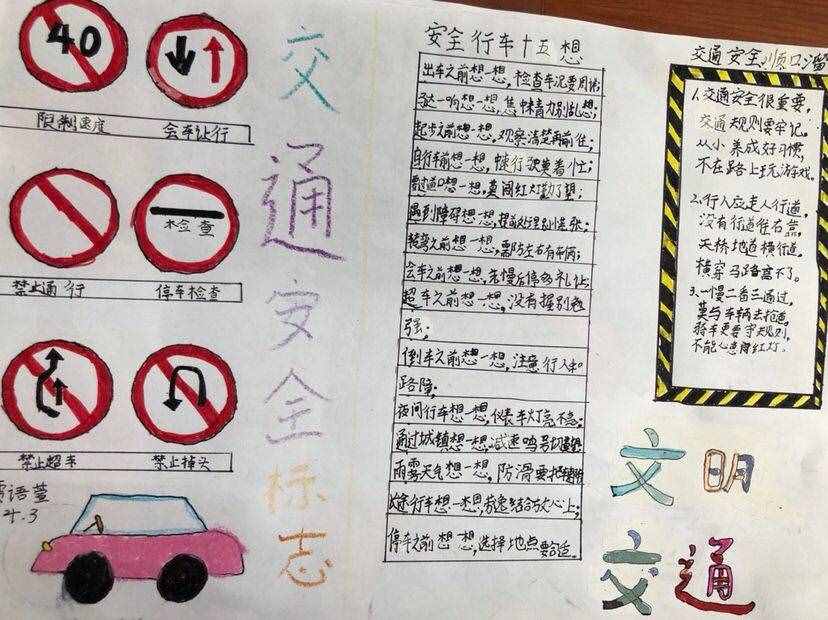 40
限制速度
会车让行
禁止通行
检查
停车检查
禁止超车
禁止掉头
语萱
4.3
交通安全标志
安全行车十五想
出车之前想一想，检查车况要周
马达一响想一想，集中精力别乱想；
起步之前想一想，观察清楚再前往；
自行车前想一想，中速行驶莫着
要过道口想一想，莫闯红灯勤了望；
遇到障碍想一想，提前处理别慌张；
转弯之前想一想，需防左右有车辆；
会车之前想一想，先慢后停多礼让；
超车之前想一想，没有握别勉
强；
倒车之前想一想，注意行人和
路障；
夜间行车想一想，仪表车灯亮不亮；
通过城镇想一想，减速鸣号切
雨雾天气想一想，防滑要把
长途行车想一想，劳逸结合放心上；
停车之前想一想，选择地点要合适。
交通安全顺口溜
1、交通安全很重要，
交通规则要牢记。
从小养成好习惯，
不在路上玩游戏。
2、行人应走人行道，
没有行道往右靠，
天桥地道横行道。
横穿马路离不了。
3、一慢二看三通过，
莫与车辆去抢道。
骑车更要守规则，
不能心急闯红灯。
文明
交通